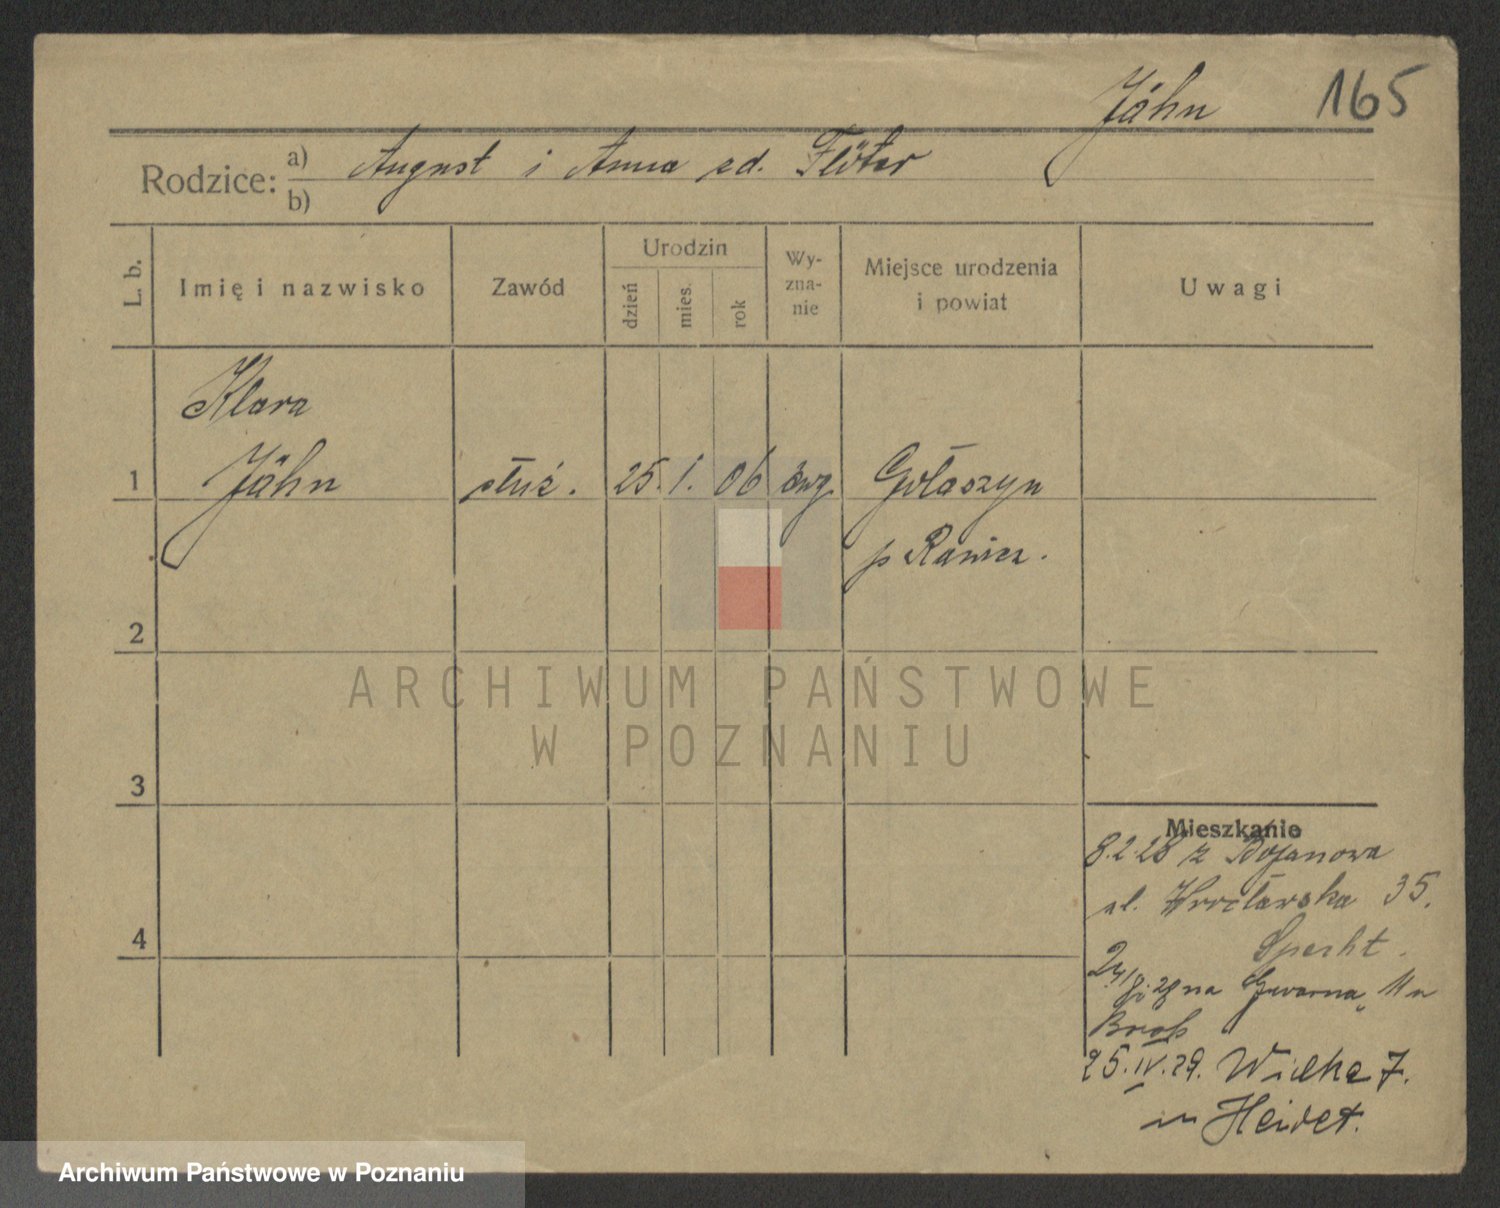 Jähn 165
Rodzice: a) August i Anna zd. Flöter
b)
L. b. Imię i nazwisko Zawód Urodzin dzień mies. rok Wyznanie Miejsce urodzenia i powiat Uwagi
Klara
1 Jähn służ. 25. 1. 06 ewg. Gołaszyn
p Rawicz.
2
ARCHIWUM PAŃSTWOWE
W POZNANIU
3
Mieszkanie
8.2.28 z Bojanowa
ul. Wrocławska 35.
4 Specht.
28 na Gwarna 11 u
25.IV.29. Wielka 7.
Archiwum Państwowe w Poznaniu